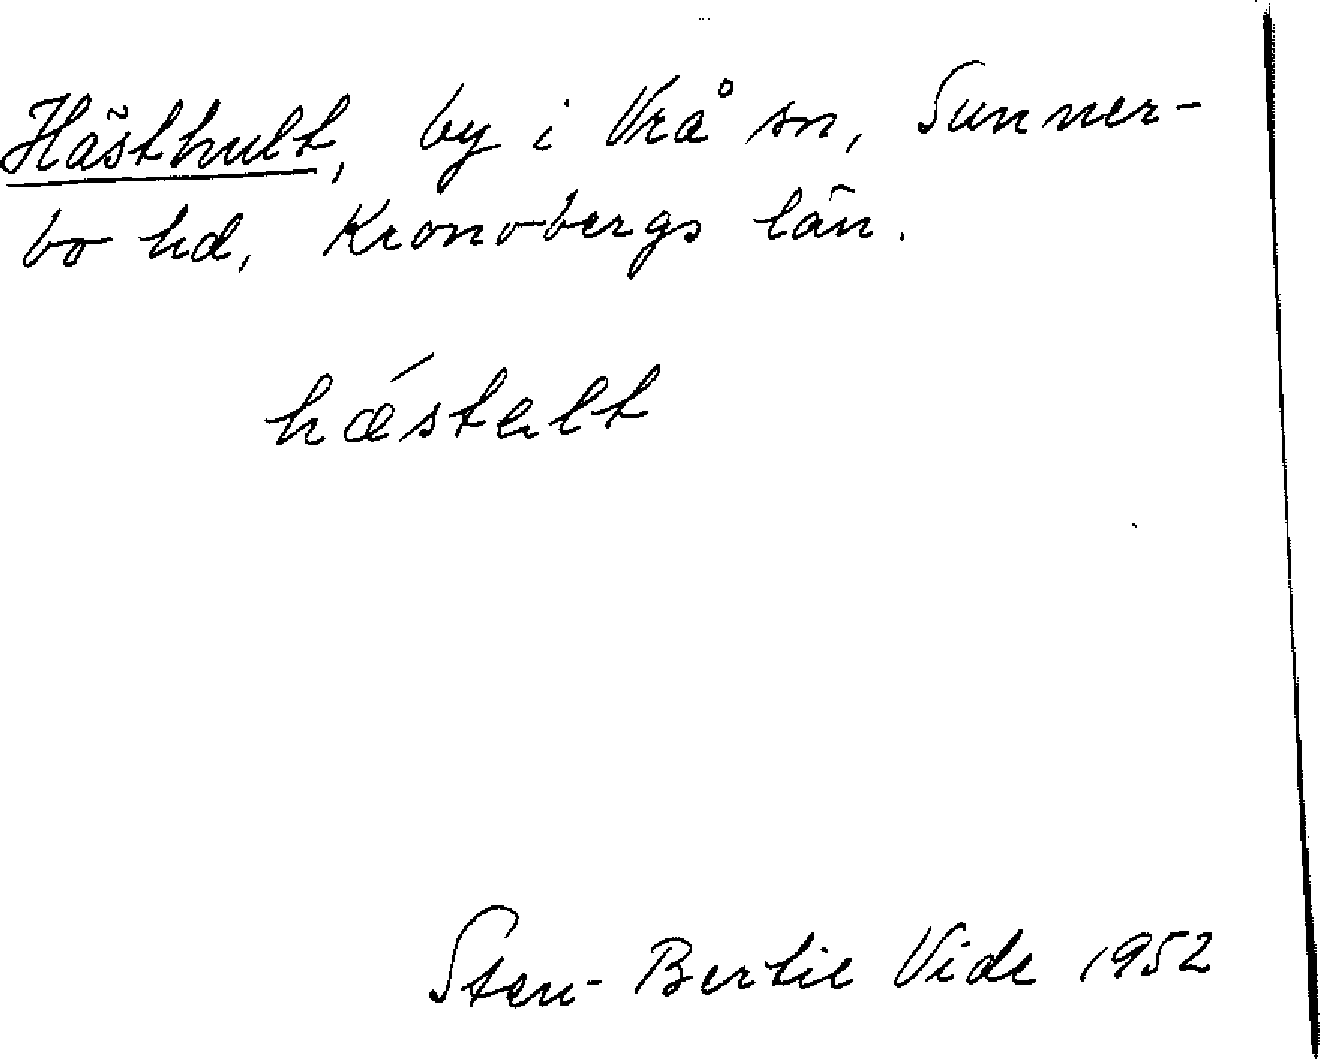 Hästhult, by i Vrå sn, Sunner-
bo hd, Kronobergs län.
hǽstalt
Sten-Bertil Vide 1952